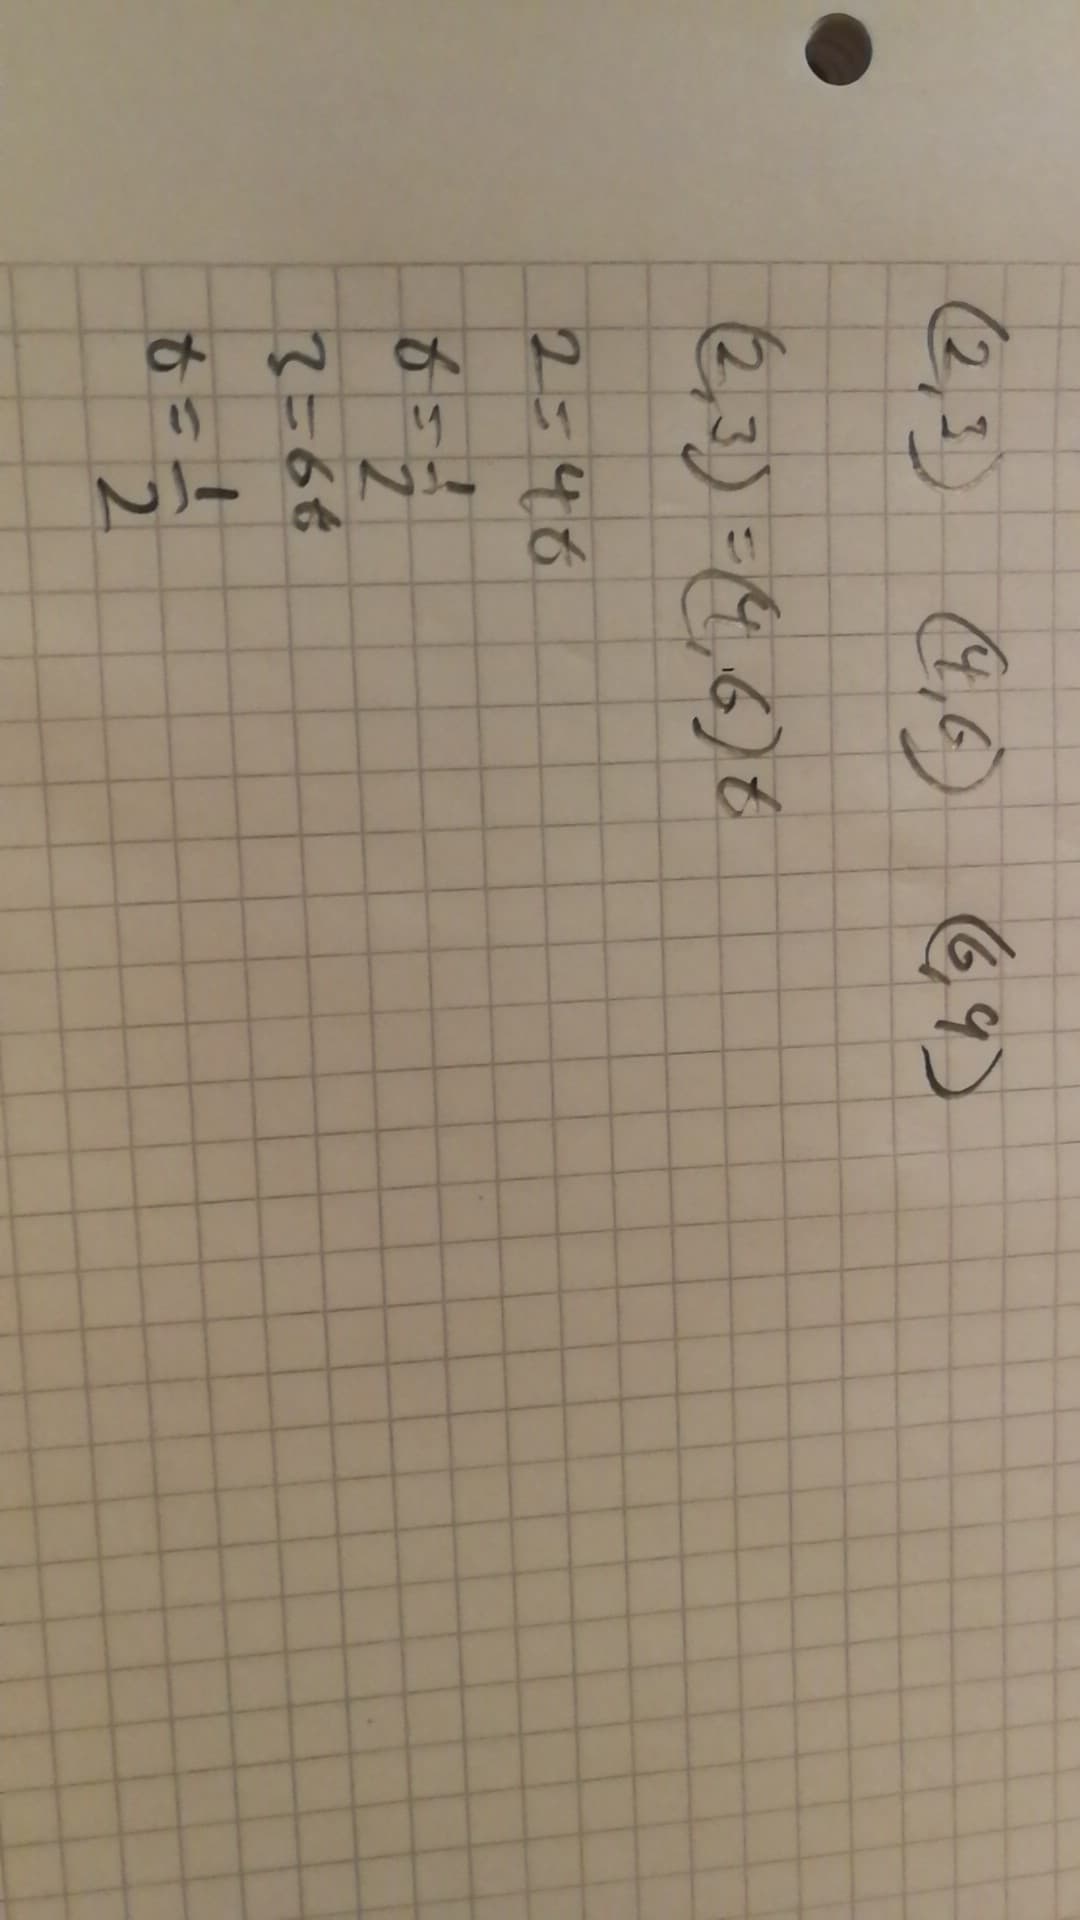 (2,3) (4,6) (6,9)
(2,3) = (4,6)t
2 = 4t
t = 1/2
3 = 6t
t = 1/2